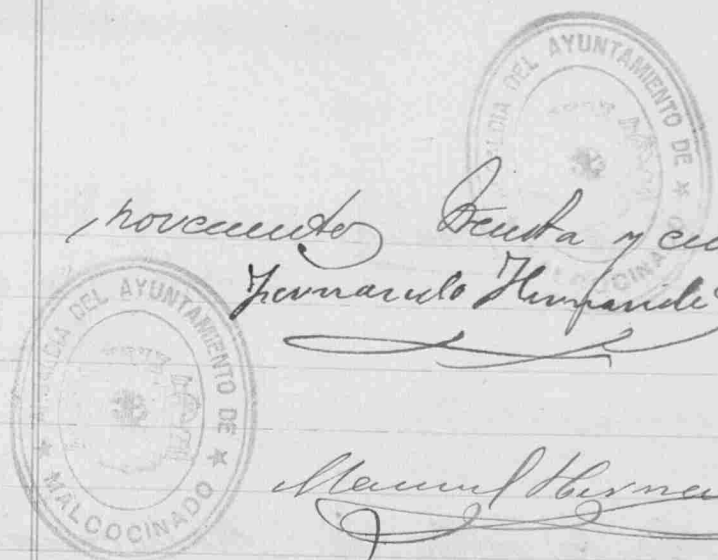 ALCALDIA DEL AYUNTAMIENTO DE ★
novecientos treinta y cu
Fernando Hernande
ALCALDIA DEL AYUNTAMIENTO DE ★ MALCOCINADO ★
Manuel Herna